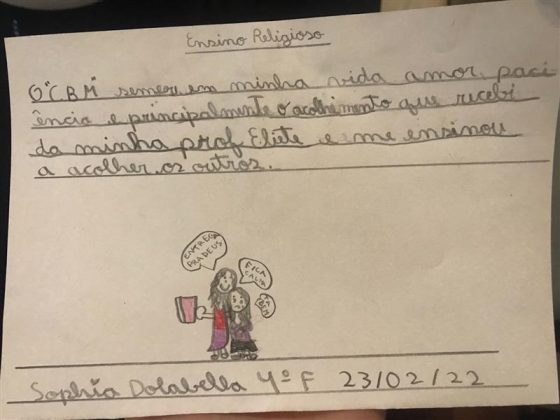 Ensino Religioso
O "CBM" semeou em minha vida amor, paci
ência e principalmente o acolhimento que recebi
da minha prof Eliete e me ensinou
a acolher os outros.
ENTREGA
PRA DEUS
FICA
CALMA
TÁ
BEM
Sophia Dolabella 4º F 23/02/22